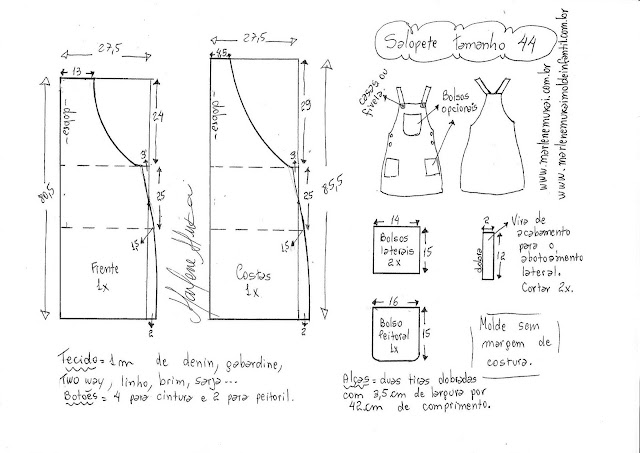 Salopete tamanho 44
27,5
13
dobra
24
80,5
3
25
1,5
Frente
1x
2
27,5
4,5
dobra
29
85,5
3
25
1,5
Costas
1x
2
Marlene Mukai
casas ou
fivela.
Bolsos
opcionais
www.marlenemukai.com.br
www.marlenemukaimoldeinfantil.com.br
14
Bolsos
laterais
2x
15
2
dobra
12
Vira de
acabamento
para o
abotoamento
lateral.
Cortar 2x.
16
Bolso
peitoral
1x
15
Molde sem
margem de
costura.
Tecido = 1m de denin, gabardine,
Two way, linho, brim, sarja...
Botões = 4 para cintura e 2 para peitoril.
Alças = duas tiras dobradas
com 3,5 cm de largura por
42cm de comprimento.